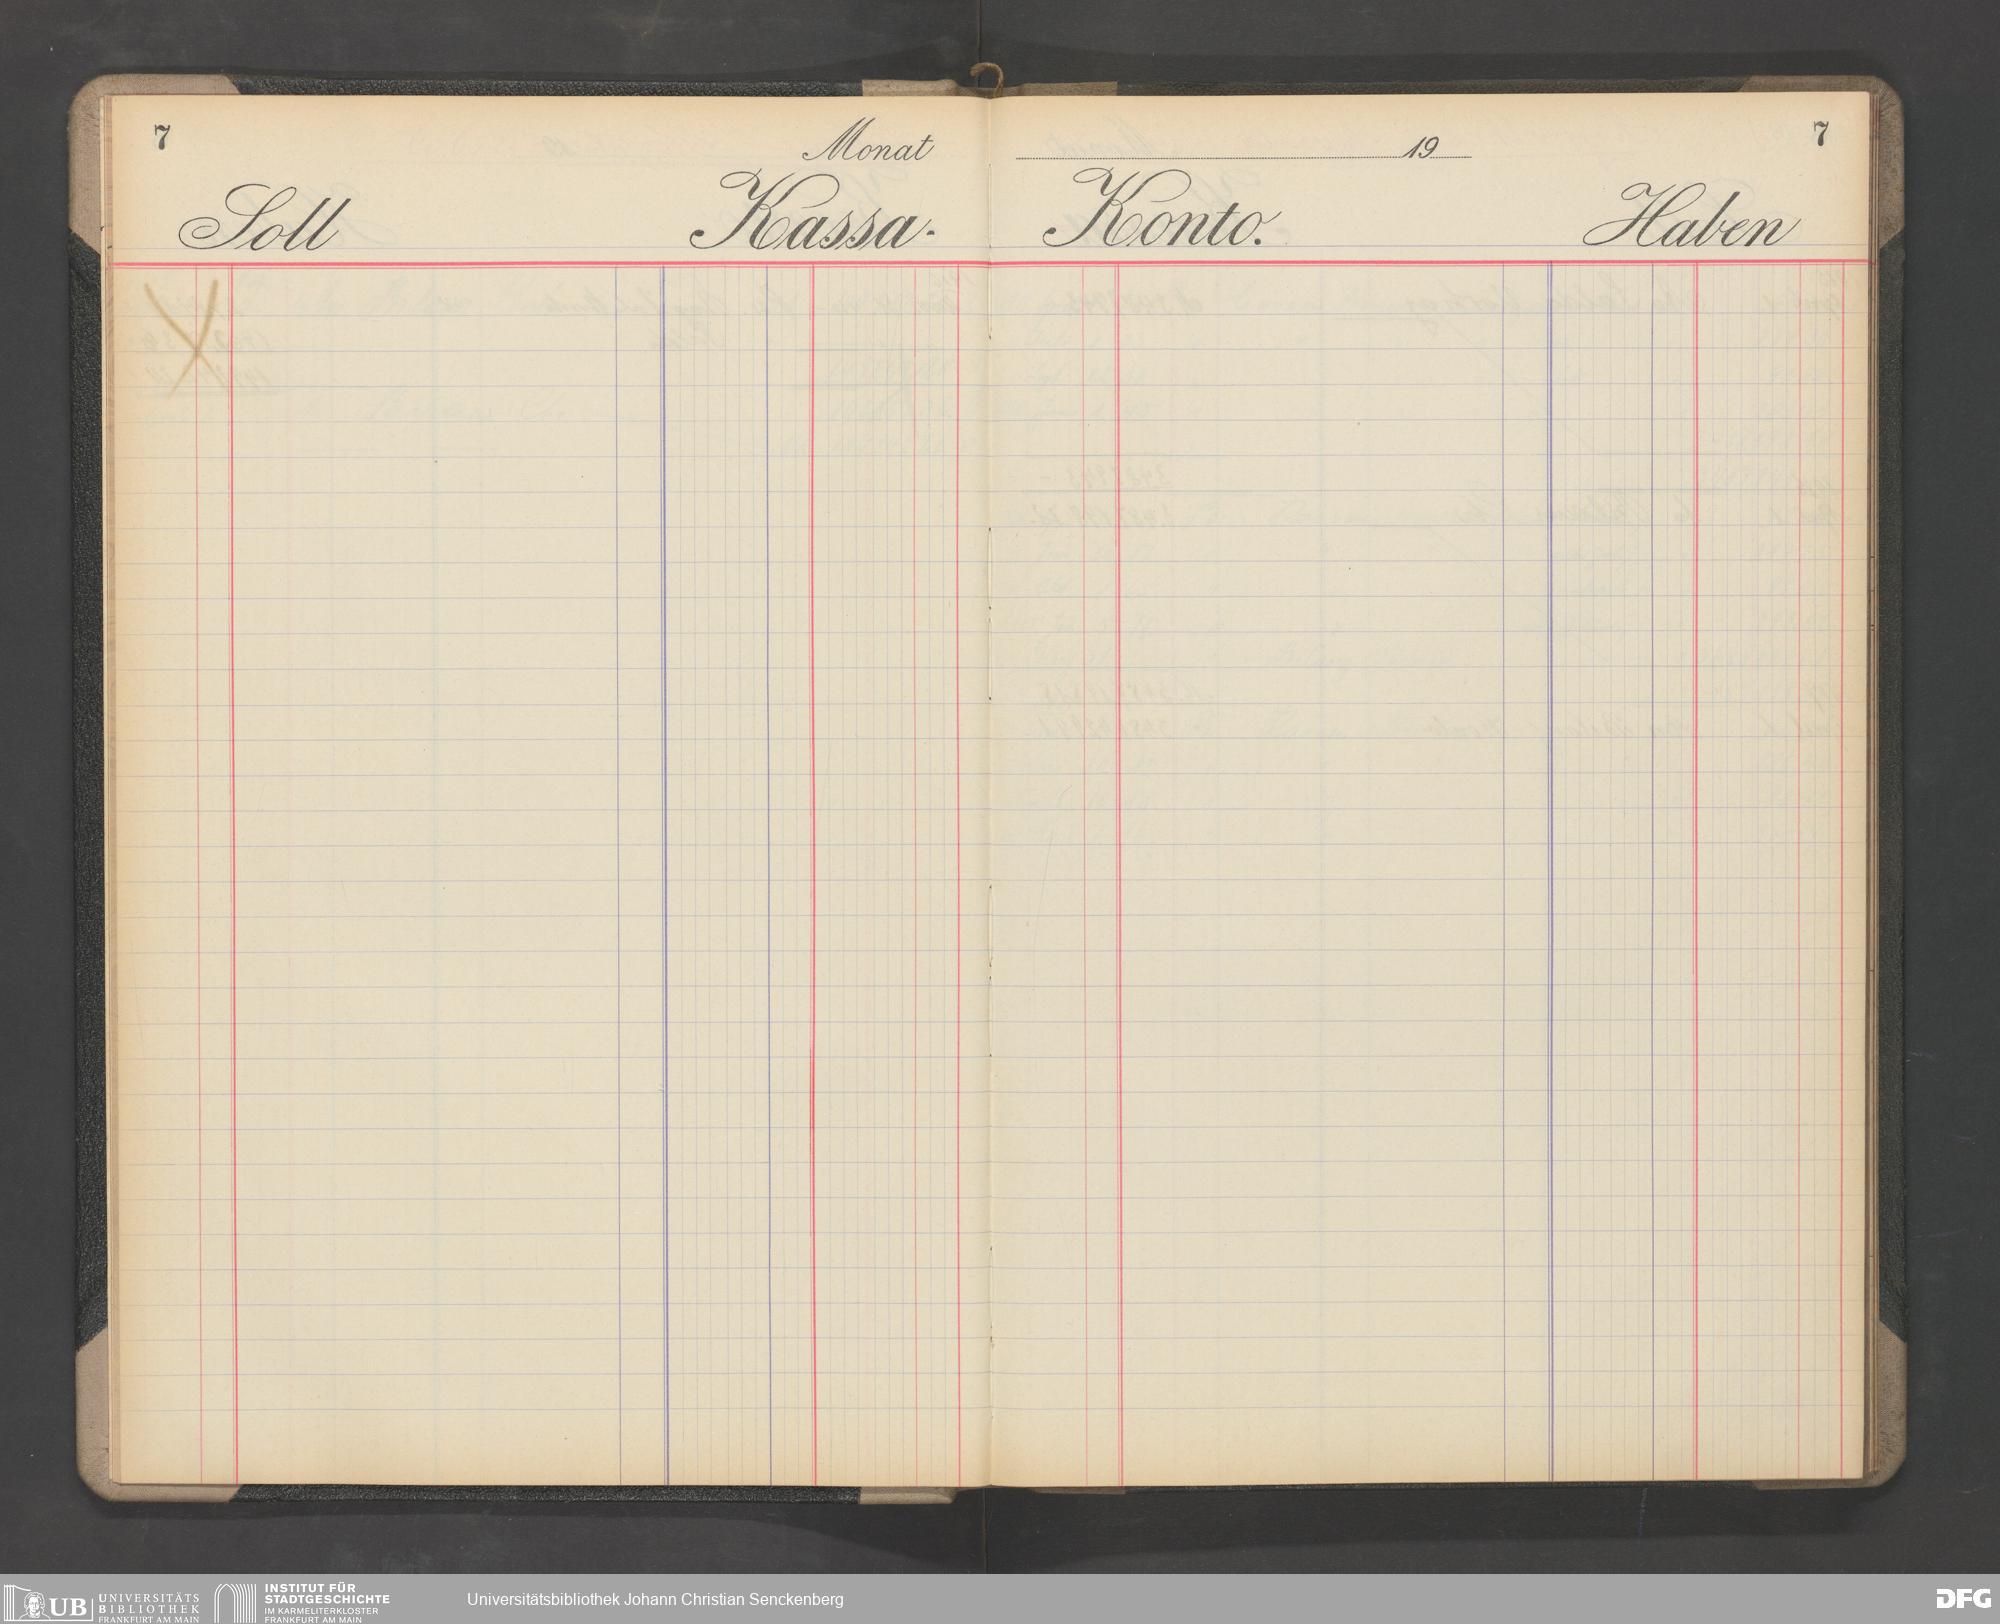 7
Monat 19
7
Soll Kassa- Konto. Haben
UB UNIVERSITÄTS
BIBLIOTHEK
FRANKFURT AM MAIN
INSTITUT FÜR
STADTGESCHICHTE
IM KARMELITERKLOSTER
FRANKFURT AM MAIN
Universitätsbibliothek Johann Christian Senckenberg
DFG